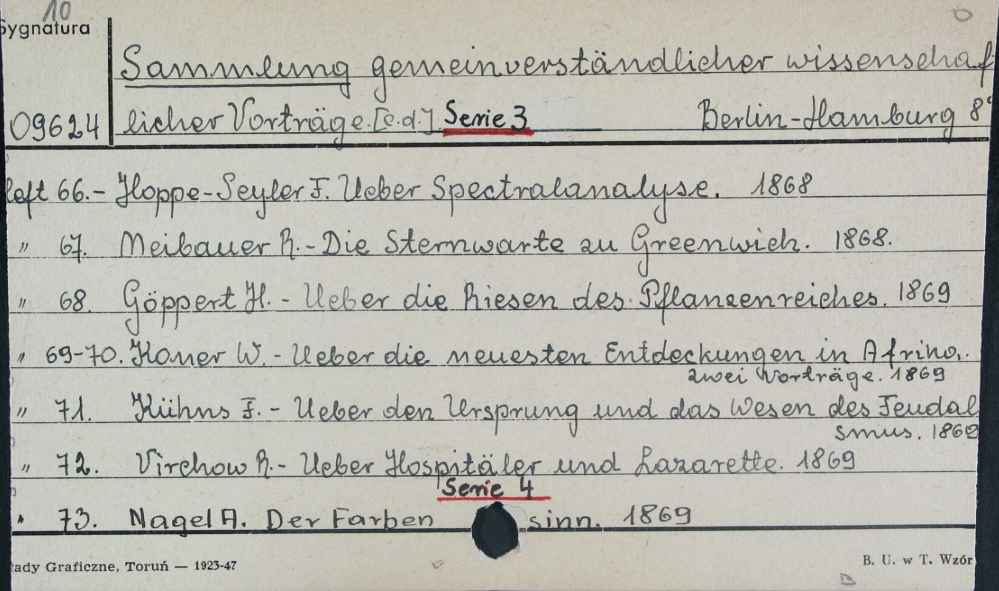 10
Sygnatura
Sammlung gemeinverständlicher wissenschaf
09624 licher Vorträge. [e.d.] Serie 3 Berlin-Hamburg 8°
Heft 66.- Hoppe-Seyler F. Ueber Spectralanalyse. 1868
" 67. Meibauer R.- Die Sternwarte zu Greenwich. 1868.
" 68. Göppert H. - Ueber die Riesen des Pflanzenreiches. 1869
" 69-70. Koner W. - Ueber die neuesten Entdeckungen in
zwei Vorträge. 1869
" 71. Kühns F. - Ueber den Ursprung und das Wesen des Feudal
smus.
" 72. Virchow R.- Ueber Hospitäler und Lazarette. 1869
Serie 4
" 73. Nagel A. Der Farben sinn. 1869
ady Graficzne, Toruń — 1923-47
B. U. w T. Wzór